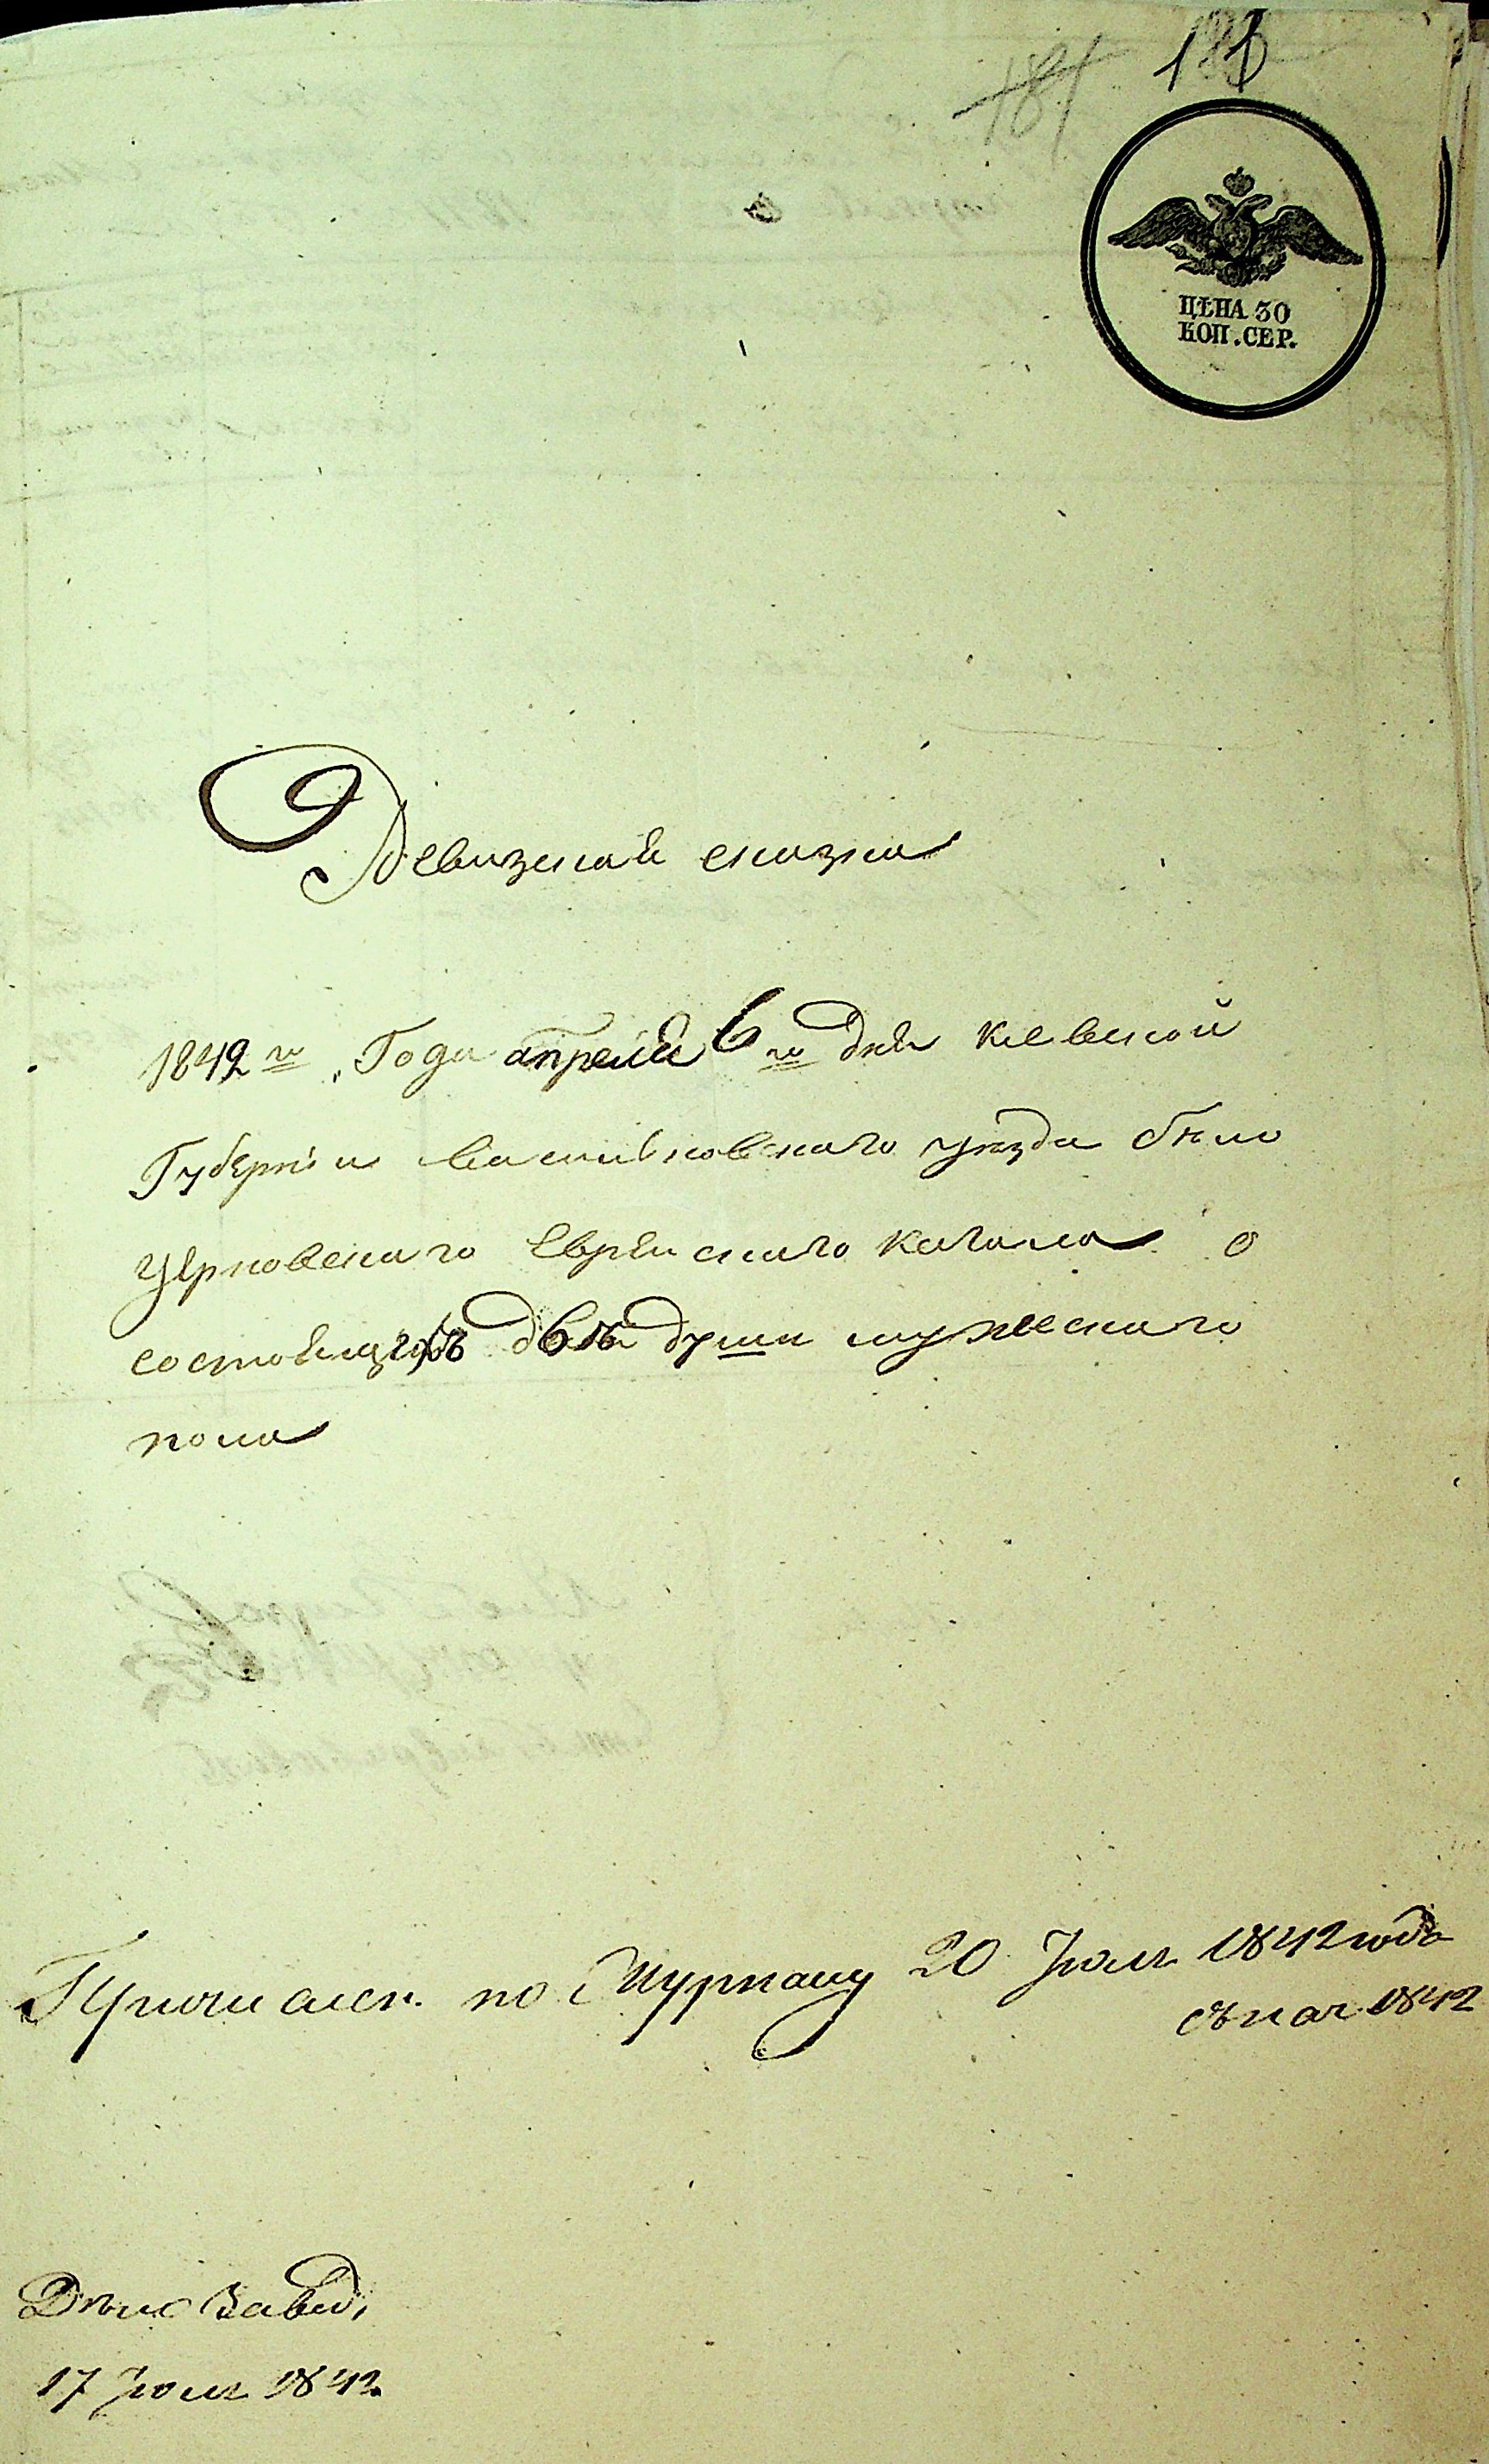 181
ЦѢНА 30
КОП. СЕР.
Ревизская сказка
1842го Года апреля 6го дня Киевской
Губерніи васильковского уезда бело
церковского еврейского кагала о
состоящихъ двѣ души мужеского
пола
по Журналу 20 Іюля 1842 года
съ нач 1842
Дѣло Завед.
17 Іюля 1842.